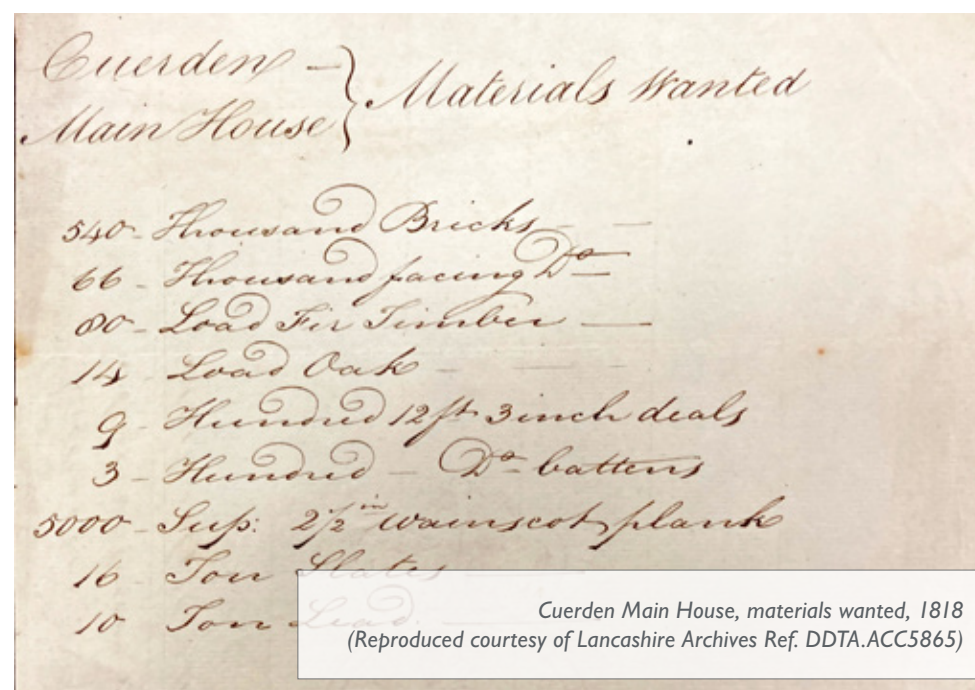 Cuerden –
Main House } Materials Wanted
540 - Thousand Bricks — —
66 - Thousand facing Do
80 - Load Fir Timber —
14 - Load Oak - — —
9 - Hundred 12ft 3inch deals
3 - Hundred – Do battens
5000 - Sup: 2 1/2 in wainscot plank
16 - Ton Slates —
10 - Ton Lead. —
Cuerden Main House, materials wanted, 1818
(Reproduced courtesy of Lancashire Archives Ref. DDTA.ACC5865)